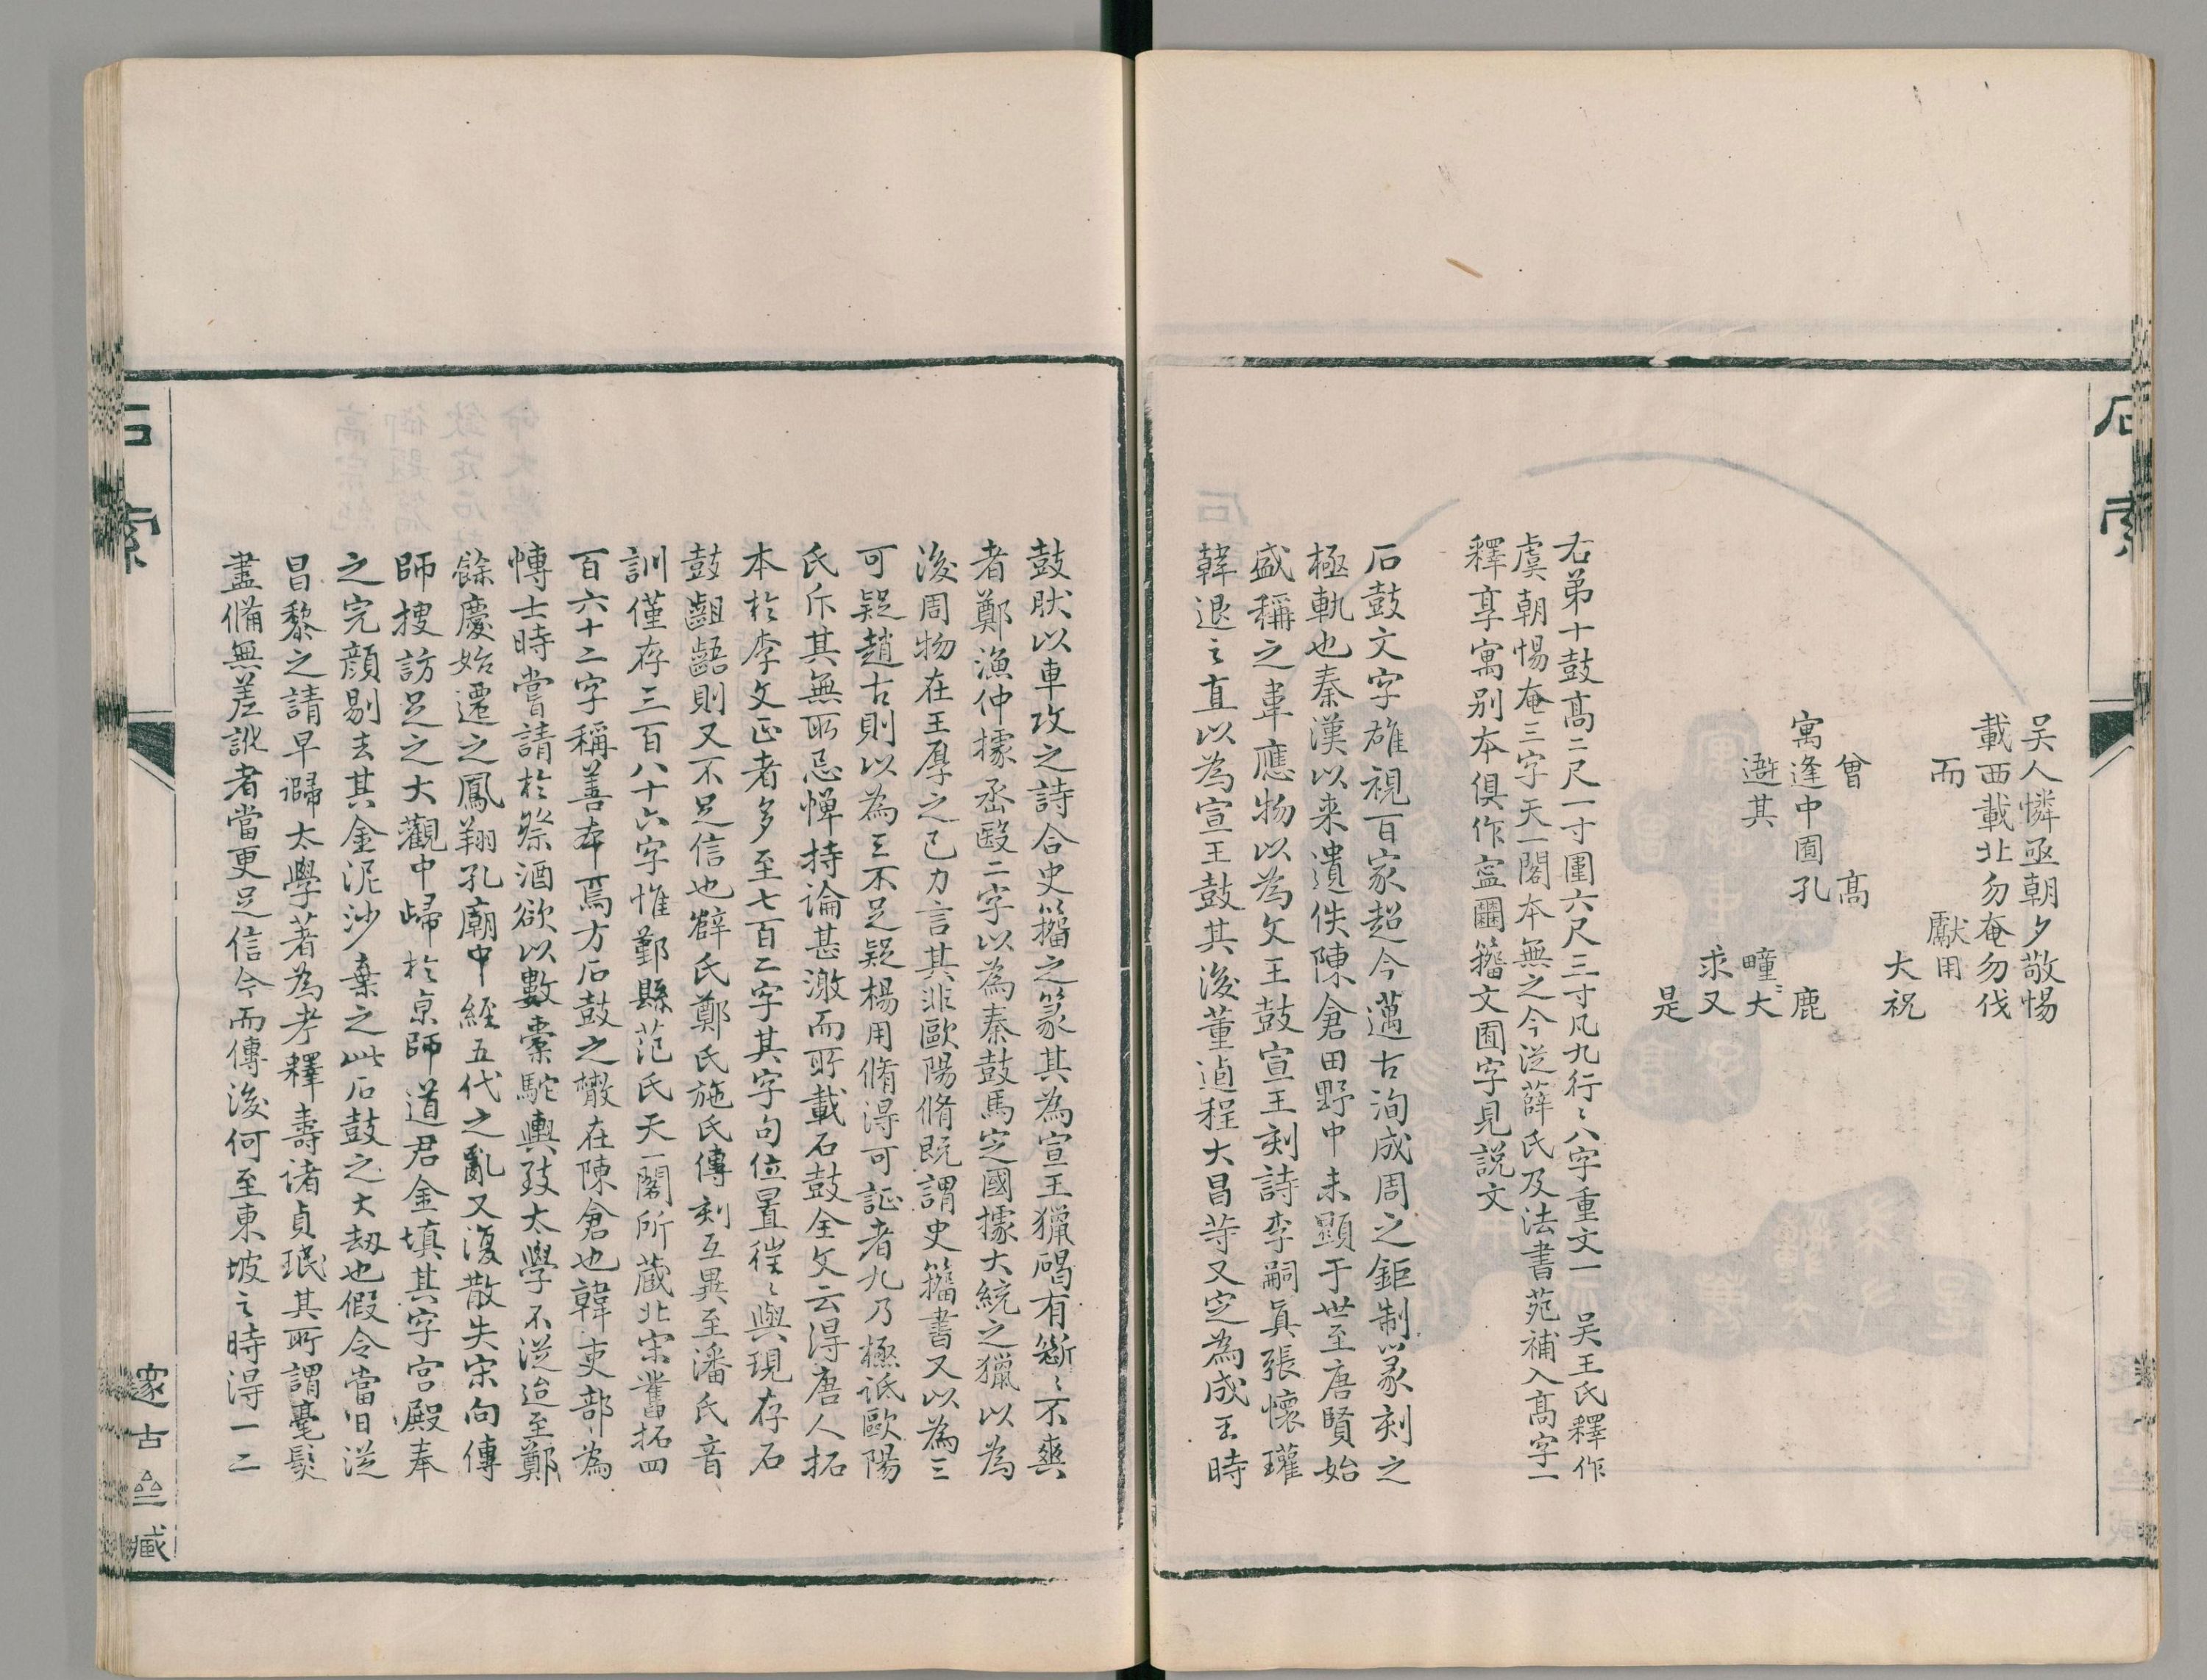 石索
吴人憐亟朝夕敬惕
載西載北勿奄勿伐
而 獻用
大祝
曾 高
寓逢中囿孔 鹿
遊其 疃〻大
求又
是
右弟十鼓高二尺一寸圍六尺三寸凡九行〻八字重文一 吴王氏釋作
虞朝惕奄三字天一閣本無之今從薛氏及法書苑補入高字一
釋享寓别本俱作寍𡇈籀文囿字見説文
石鼓文字雄視百家超今邁古洵成周之鉅制篆刻之
極軌也秦漢以来遺佚陳倉田野中未顯于世至唐賢始
盛稱之韋應物以為文王鼓宣王刻詩李嗣真張懷瓘
韓退之直以為宣王鼓其後董逌程大昌䓁又定為成王時
鼓肰以車攻之詩合史籀之篆其為宣王獵碣有斷〻不爽
者鄭漁仲據丞殹二字以為秦鼓馬定國據大統之獵以為
後周物在王厚之已力言其非歐陽脩既謂史籀書又以為三
可疑趙古則以為三不足疑楊用脩淂可証者九乃極詆歐陽
氏斥其無所忌憚持論甚激而所載石鼓全文云淂唐人拓
本於李文正者多至七百二字其字句位置徃〻與現存石
鼓齟齬則又不足信也薛氏鄭氏施氏傳刻互異至潘氏音
訓僅存三百八十六字惟鄞縣范氏天一閣所藏北宋舊拓四
百六十二字稱善本焉方石鼓之㪚在陳倉也韓吏部為
慱士時嘗請於祭酒欲以數橐駝輿致太學不從迨至鄭
餘慶始遷之鳳翔孔廟中經五代之亂又復散失宋向傳
師搜訪足之大觀中歸於京師道君金填其字宫殿奉
之完顔剔去其金泥沙棄之此石鼓之大刼也假令當日從
昌黎之請早歸太學著為考釋壽諸貞珉其所謂毫髮
盡俻無差訛者當更足信今而傳後何至東坡之時淂一二
石索
邃古亝臧